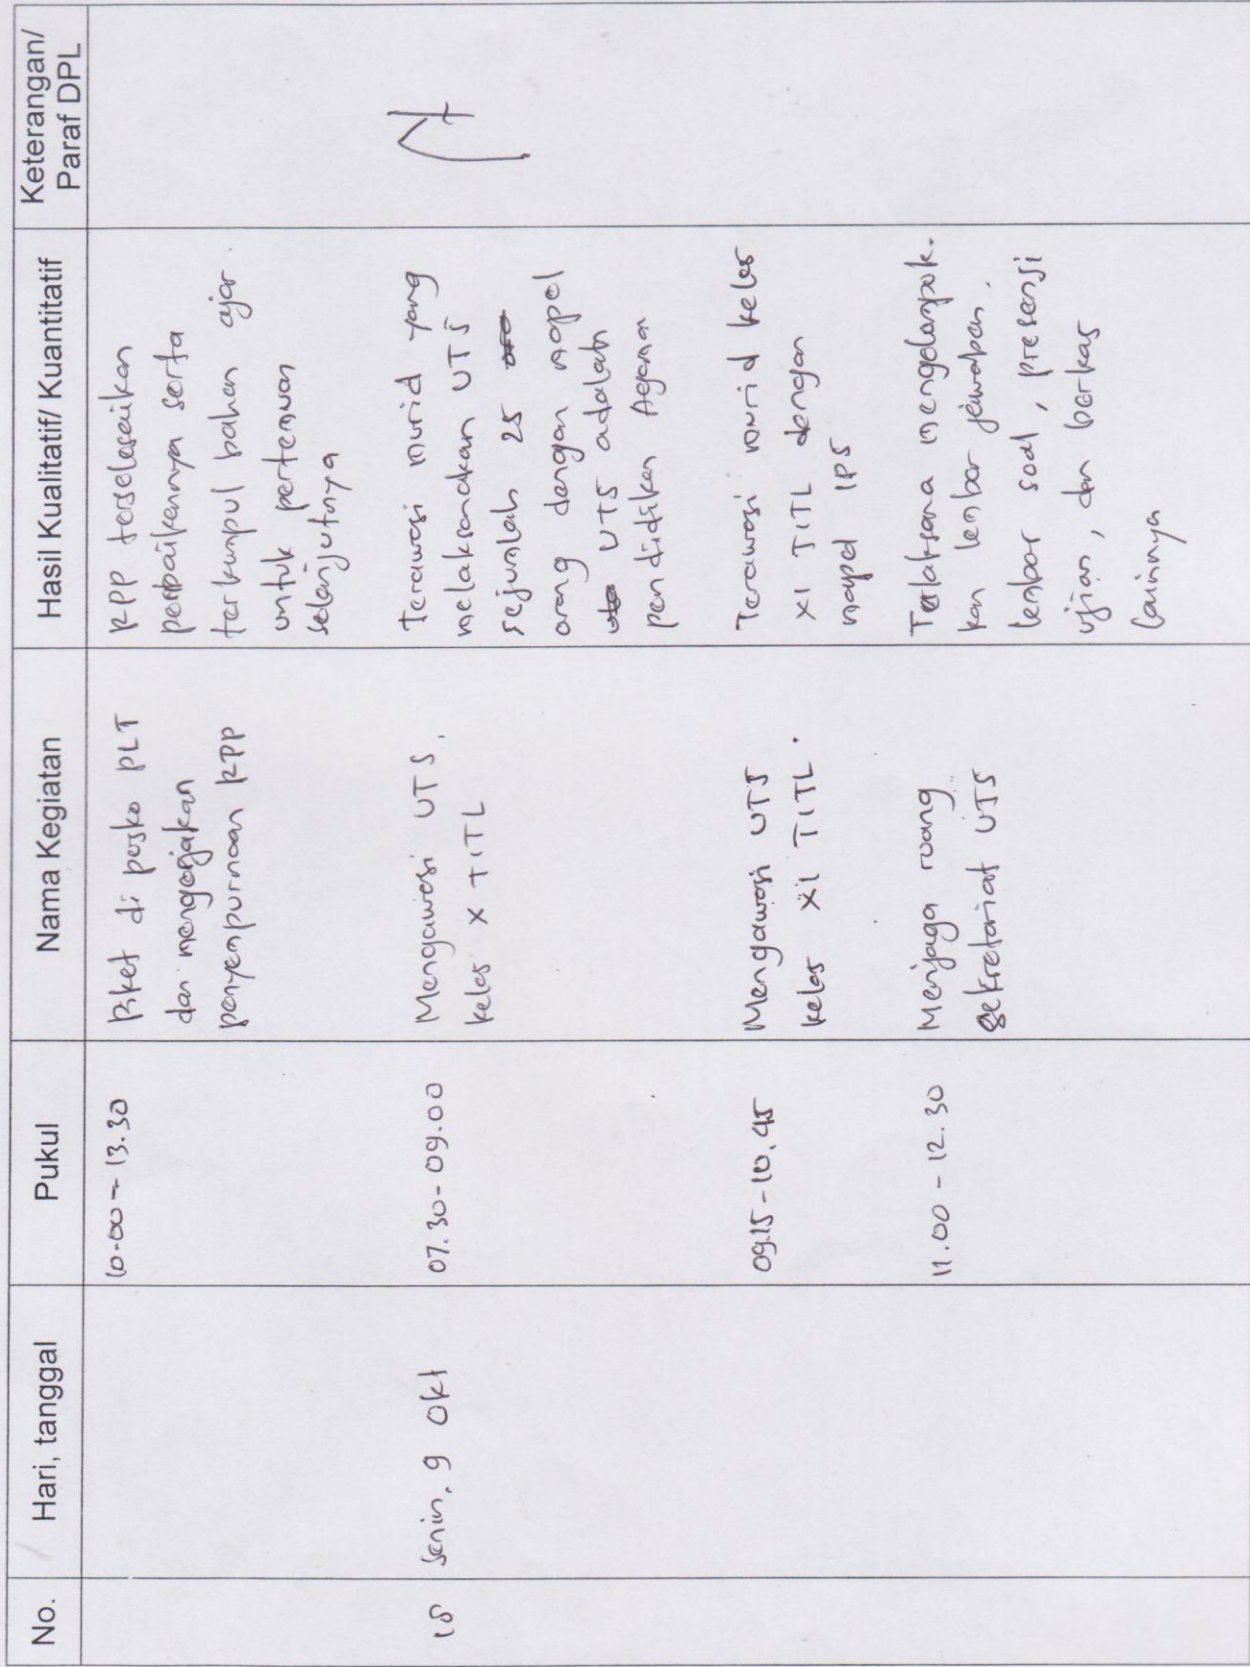 No.
Hari, tanggal
Pukul
Nama Kegiatan
Hasil Kualitatif/ Kuantitatif
Keterangan/
Paraf DPL
10.00 - 13.30
Piket di posko PLT
dan mengerjakan
penyempurnaan RPP
RPP terselesaikan
perbaikannya serta
terkumpul bahan ajar.
untuk pertemuan
selanjutnya
18
Senin, 9 Okt
07.30 - 09.00
Mengawasi UTS.
kelas X TITL
Terawasi murid yang
melaksanakan UTS
sejumlah 25
orang dengan mapel
UTS adalah
pendidikan Agama
09.15 - 10.45
Mengawasi UTS
kelas XI TITL.
Terawasi murid kelas
XI TITL dengan
mapel IPS
11.00 - 12.30
Menjaga ruang
Sekretariat UTS
Terlaksana mengelompok-
kan lembar jawaban,
lembar soal, presensi
ujian, dan berkas
lainnya